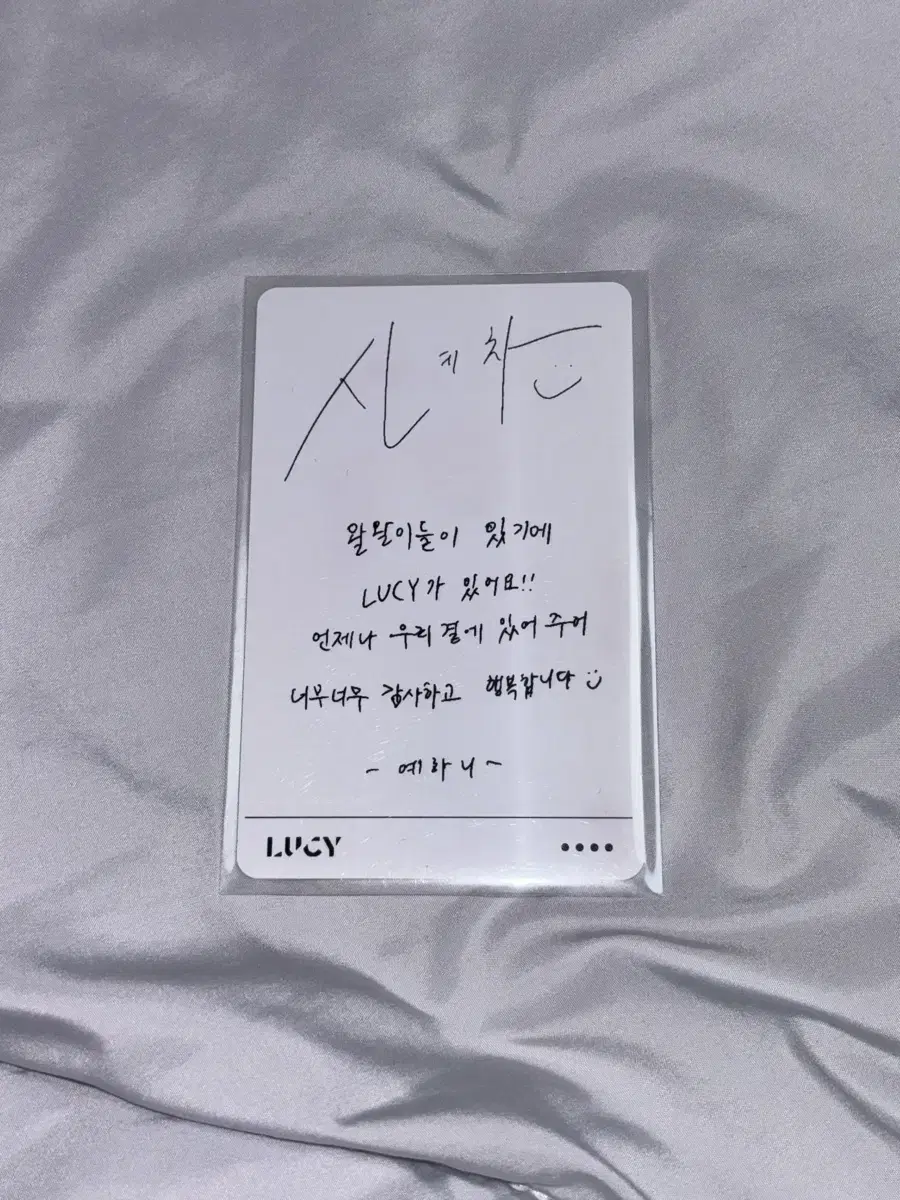 왈왈이들이 있기에
LUCY가 있어요!!
언제나 우리 곁에 있어 주어
너무너무 감사하고 행복합니다 :)
- 예하니 ~
LUCY